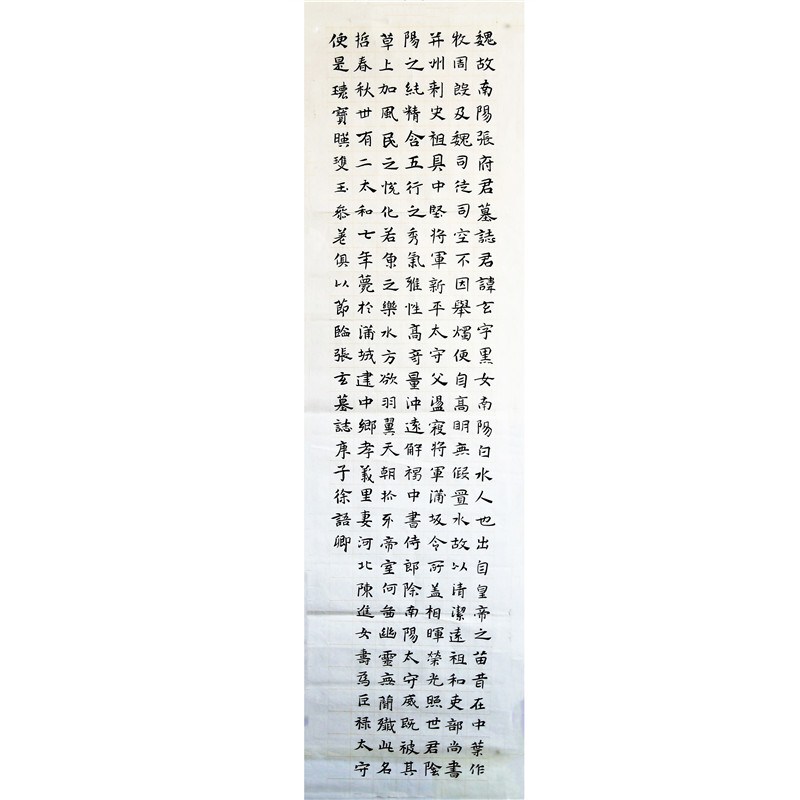 魏故南陽張府君墓誌君諱玄字黑女南陽白水人也出自皇帝之苗昔在中葉作
牧周殷及魏司徒司空不因舉燭便自高明無假置水故以清潔遠祖和吏部尚書
并州刺史祖具中堅將軍新平太守父盪寇將軍蒲坂令所蓋相暉榮光照世君陰
陽之純精含五行之秀氣雅性高奇量沖遠解褐中書侍郎除南陽太守威既被其
草上加風民之悅化若魚之樂水方欲羽翼天朝抓牙帝室何啚幽靈無簡殲此名
哲春秋卅有二太和七年薨於蒲城建中鄉孝義里妻河北陳進女書為巨祿太守
便是瓌寶暎雙玉參差俱以節臨張玄墓誌庚子徐語卿